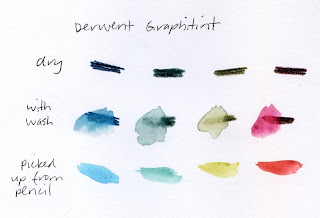 Derwent Graphitint
dry
with
wash
picked
up from
pencil